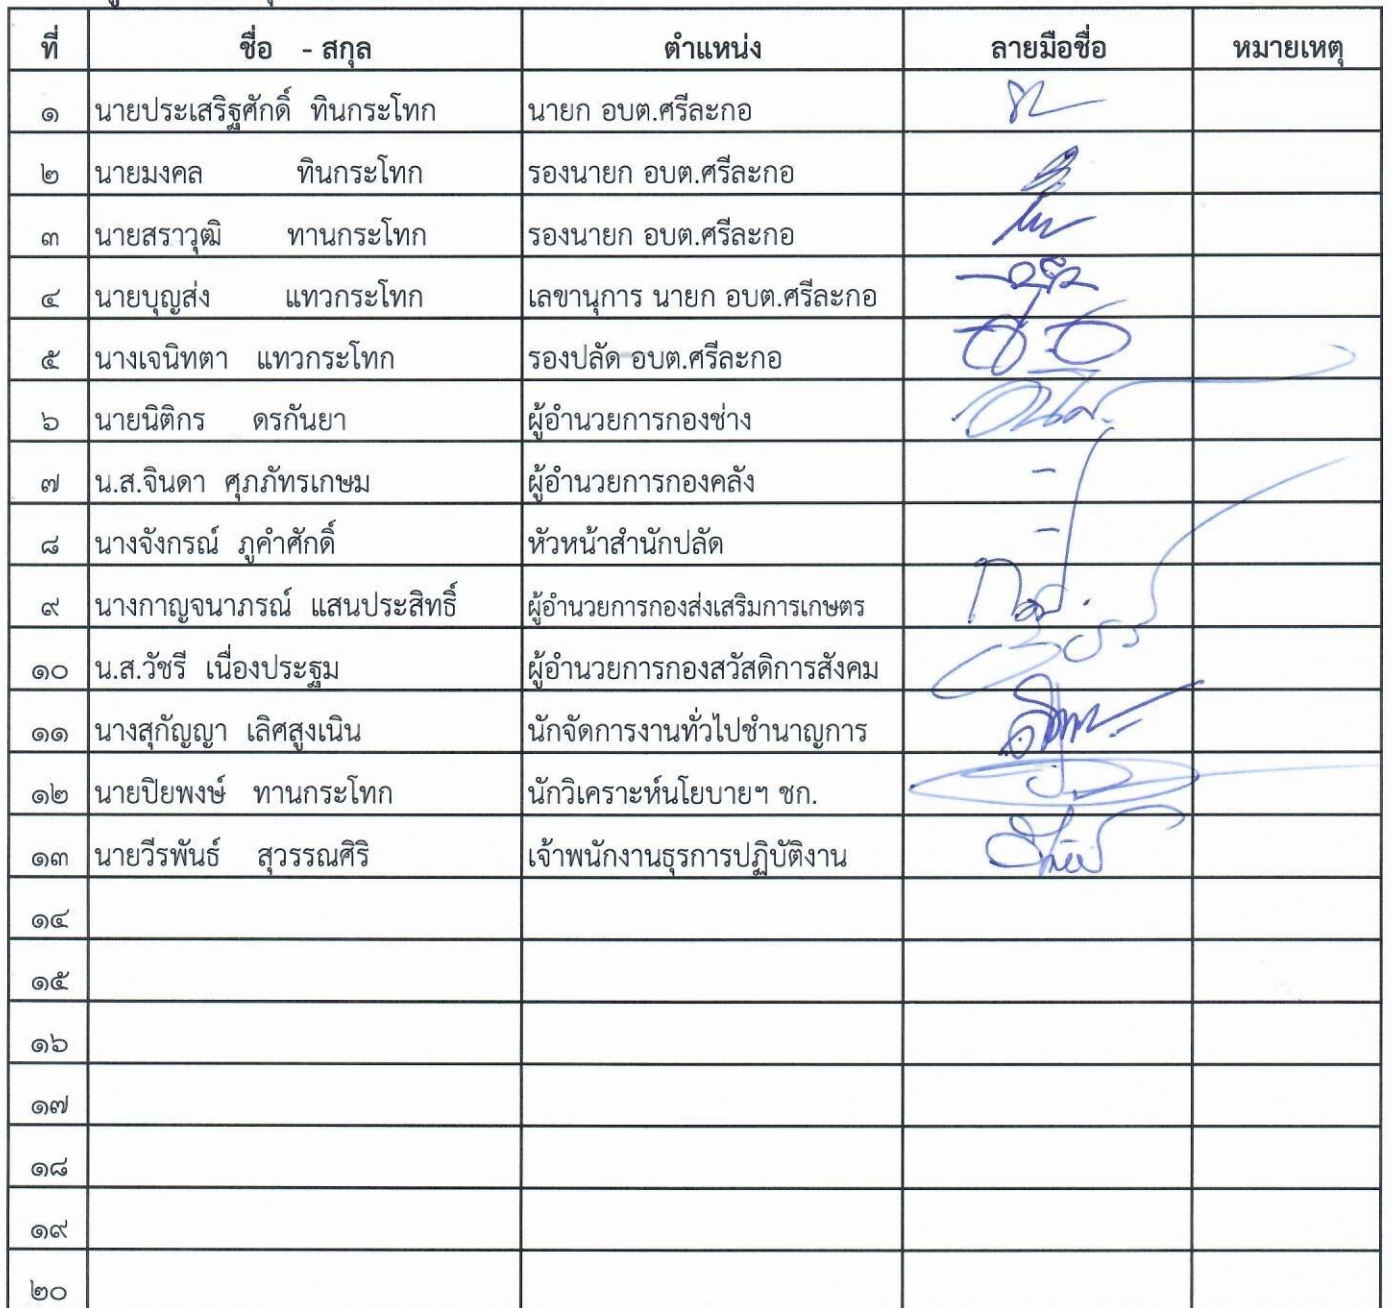 ที่ ชื่อ - สกุล ตำแหน่ง ลายมือชื่อ หมายเหตุ
๑ นายประเสริฐศักดิ์ ทินกระโทก นายก อบต.ศรีละกอ
๒ นายมงคล ทินกระโทก รองนายก อบต.ศรีละกอ
๓ นายสราวุฒิ ทานกระโทก รองนายก อบต.ศรีละกอ
๔ นายบุญส่ง แทวกระโทก เลขานุการ นายก อบต.ศรีละกอ
๕ นางเจนิทตา แทวกระโทก รองปลัด อบต.ศรีละกอ
๖ นายนิติกร ดรกันยา ผู้อำนวยการกองช่าง
๗ น.ส.จินดา ศุภภัทรเกษม ผู้อำนวยการกองคลัง -
๘ นางจังกรณ์ ภูคำศักดิ์ หัวหน้าสำนักปลัด -
๙ นางกาญจนาภรณ์ แสนประสิทธิ์ ผู้อำนวยการกองส่งเสริมการเกษตร
๑๐ น.ส.วัชรี เนื่องประฐม ผู้อำนวยการกองสวัสดิการสังคม
๑๑ นางสุกัญญา เลิศสูงเนิน นักจัดการงานทั่วไปชำนาญการ
๑๒ นายปิยพงษ์ ทานกระโทก นักวิเคราะห์นโยบายฯ ชก.
๑๓ นายวีรพันธ์ สุวรรณศิริ เจ้าพนักงานธุรการปฏิบัติงาน
๑๔
๑๕
๑๖
๑๗
๑๘
๑๙
๒๐